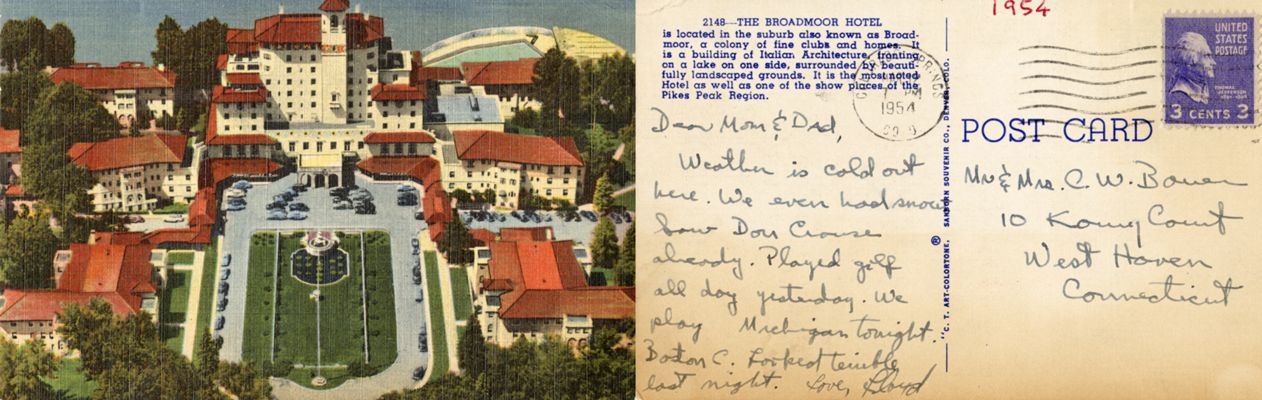 2148—THE BROADMOOR HOTEL
is located in the suburb also known as Broad-
moor, a colony of fine clubs and homes. It
is a building of Italian Architecture, fronting
on a lake on one side, surrounded by beauti-
fully landscaped grounds. It is the most noted
Hotel as well as one of the show places of the
Pikes Peak Region.
Dear Mom & Dad,
Weather is cold out
here. We even had snow
Saw Don Crouse
already. Played golf
all day yesterday. We
play Michigan tonight.
Boston C. Looked terrible
last night. Love, Lloyd
"C. T. ART-COLORTONE, ® SANBORN SOUVENIR CO., DENVER, COLO.
1954
SPRINGS
PM
1954
COLO
UNITED
STATES
POSTAGE
THOMAS
JEFFERSON
3 CENTS 3
POST CARD
Mr & Mrs. C. W. Bower
10 Court
West Haven
Connecticut